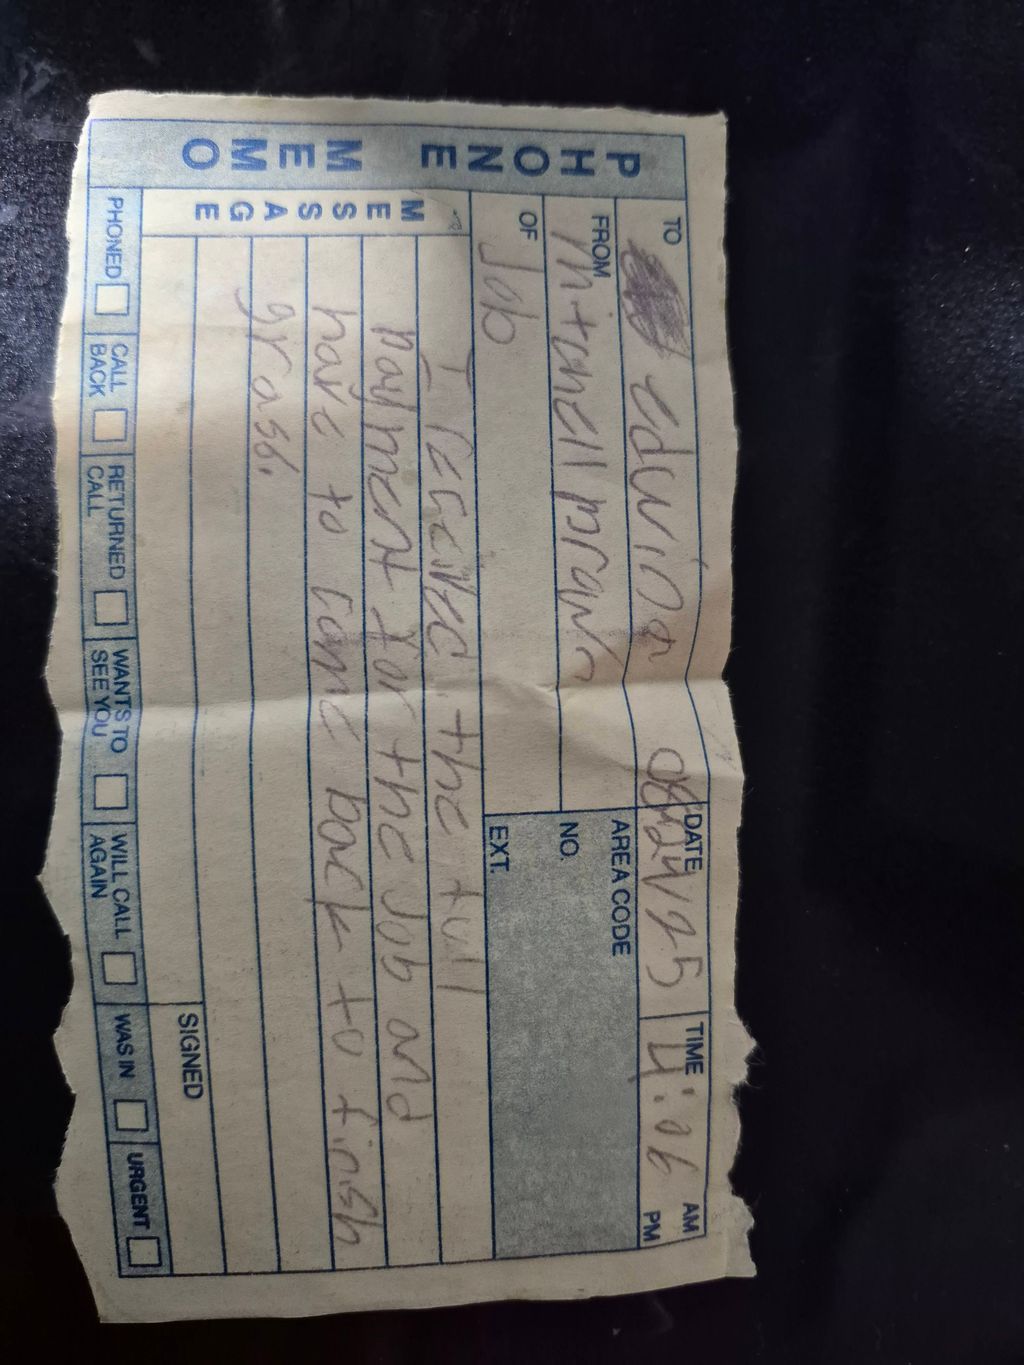 PHONE MEMO
TO edwina
DATE 08/24/25
TIME 4:06 AM PM
FROM mitchell
AREA CODE
NO.
OF Job
EXT.
MESSAGE
I received the full
payment for the Job and
have to came back to finish
grass.
SIGNED
PHONED
CALL BACK
RETURNED CALL
WANTS TO SEE YOU
WILL CALL AGAIN
WAS IN
URGENT